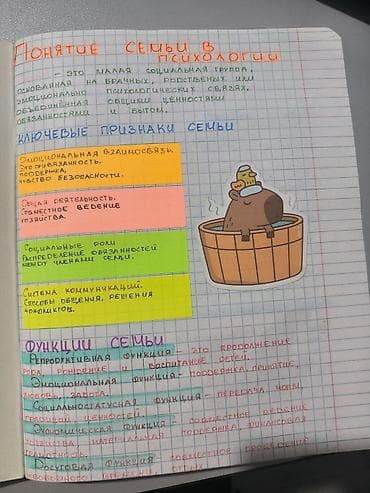 ПОНЯТИЕ СЕМЬИ В
ПСИХОЛОГИИ
– ЭТО МАЛАЯ СОЦИАЛЬНАЯ ГРУППА,
ОСНОВАННАЯ НА БРАЧНЫХ, РОДСТВЕНЫХ ИЛИ
ЭМОЦИОНАЛЬНО ПСИХОЛОГИЧЕСКИХ СВЯЗЯХ,
ОБЪЕДИНЁННАЯ ОБЩИМИ ЦЕННОСТЯМИ
ОБЯЗАННОСТЯМИ И БЫТОМ.
КЛЮЧЕВЫЕ ПРИЗНАКИ СЕМЬИ
ЭМОЦИОНАЛЬНАЯ ВЗАИМОСВЯЗЬ.
ЭТО ПРИВЯЗАННОСТЬ,
ПОДДЕРЖКА,
ЧУВСТВО БЕЗОПАСНОСТИ.
ОБЩАЯ ДЕЯТЕЛЬНОСТЬ.
СОВМЕСТНОЕ ВЕДЕНИЕ
ХОЗЯЙСТВА.
СОЦИАЛЬНЫЕ РОЛИ
РАСПРЕДЕЛЕНИЕ ОБЯЗАННОСТЕЙ
МЕЖДУ ЧЛЕНАМИ СЕМЬИ.
СИСТЕМА КОММУНИКАЦИЙ.
СПОСОБЫ ОБЩЕНИЯ, РЕШЕНИЯ
КОНФЛИКТОВ.
ФУНКЦИИ СЕМЬИ
РЕПРОДУКТИВНАЯ ФУНКЦИЯ – ЭТО ПРОДОЛЖЕНИЕ
РОДА, РОЖДЕНИЕ И ВОСПИТАНИЕ ДЕТЕЙ.
ЭМОЦИОНАЛЬНАЯ ФУНКЦИЯ – ПОДДЕРЖКА, ПРИНЯТИЕ,
ЛЮБОВЬ, ЗАБОТА.
СОЦИАЛЬНОСТАТУСНАЯ ФУНКЦИЯ – ПЕРЕДАЧА НОРМ,
ТРАДИЦИЙ ЦЕННОСТЕЙ.
ЭКОНОМИЧЕСКАЯ ФУНКЦИЯ – СОВМЕСТНОЕ ВЕДЕНИЕ
ХОЗЯЙСТВА МАТЕРИАЛЬНАЯ ПОДДЕРЖКА ФИНАНСОВАЯ
ГРАМОТНОСТЬ.
ДОСУГОВАЯ ФУНКЦИЯ – СОВМЕСТНОЕ ПРОВЕДЕНИЕ
СВОБОДНОГО ВРЕМЕНИ, ОТДЫХ